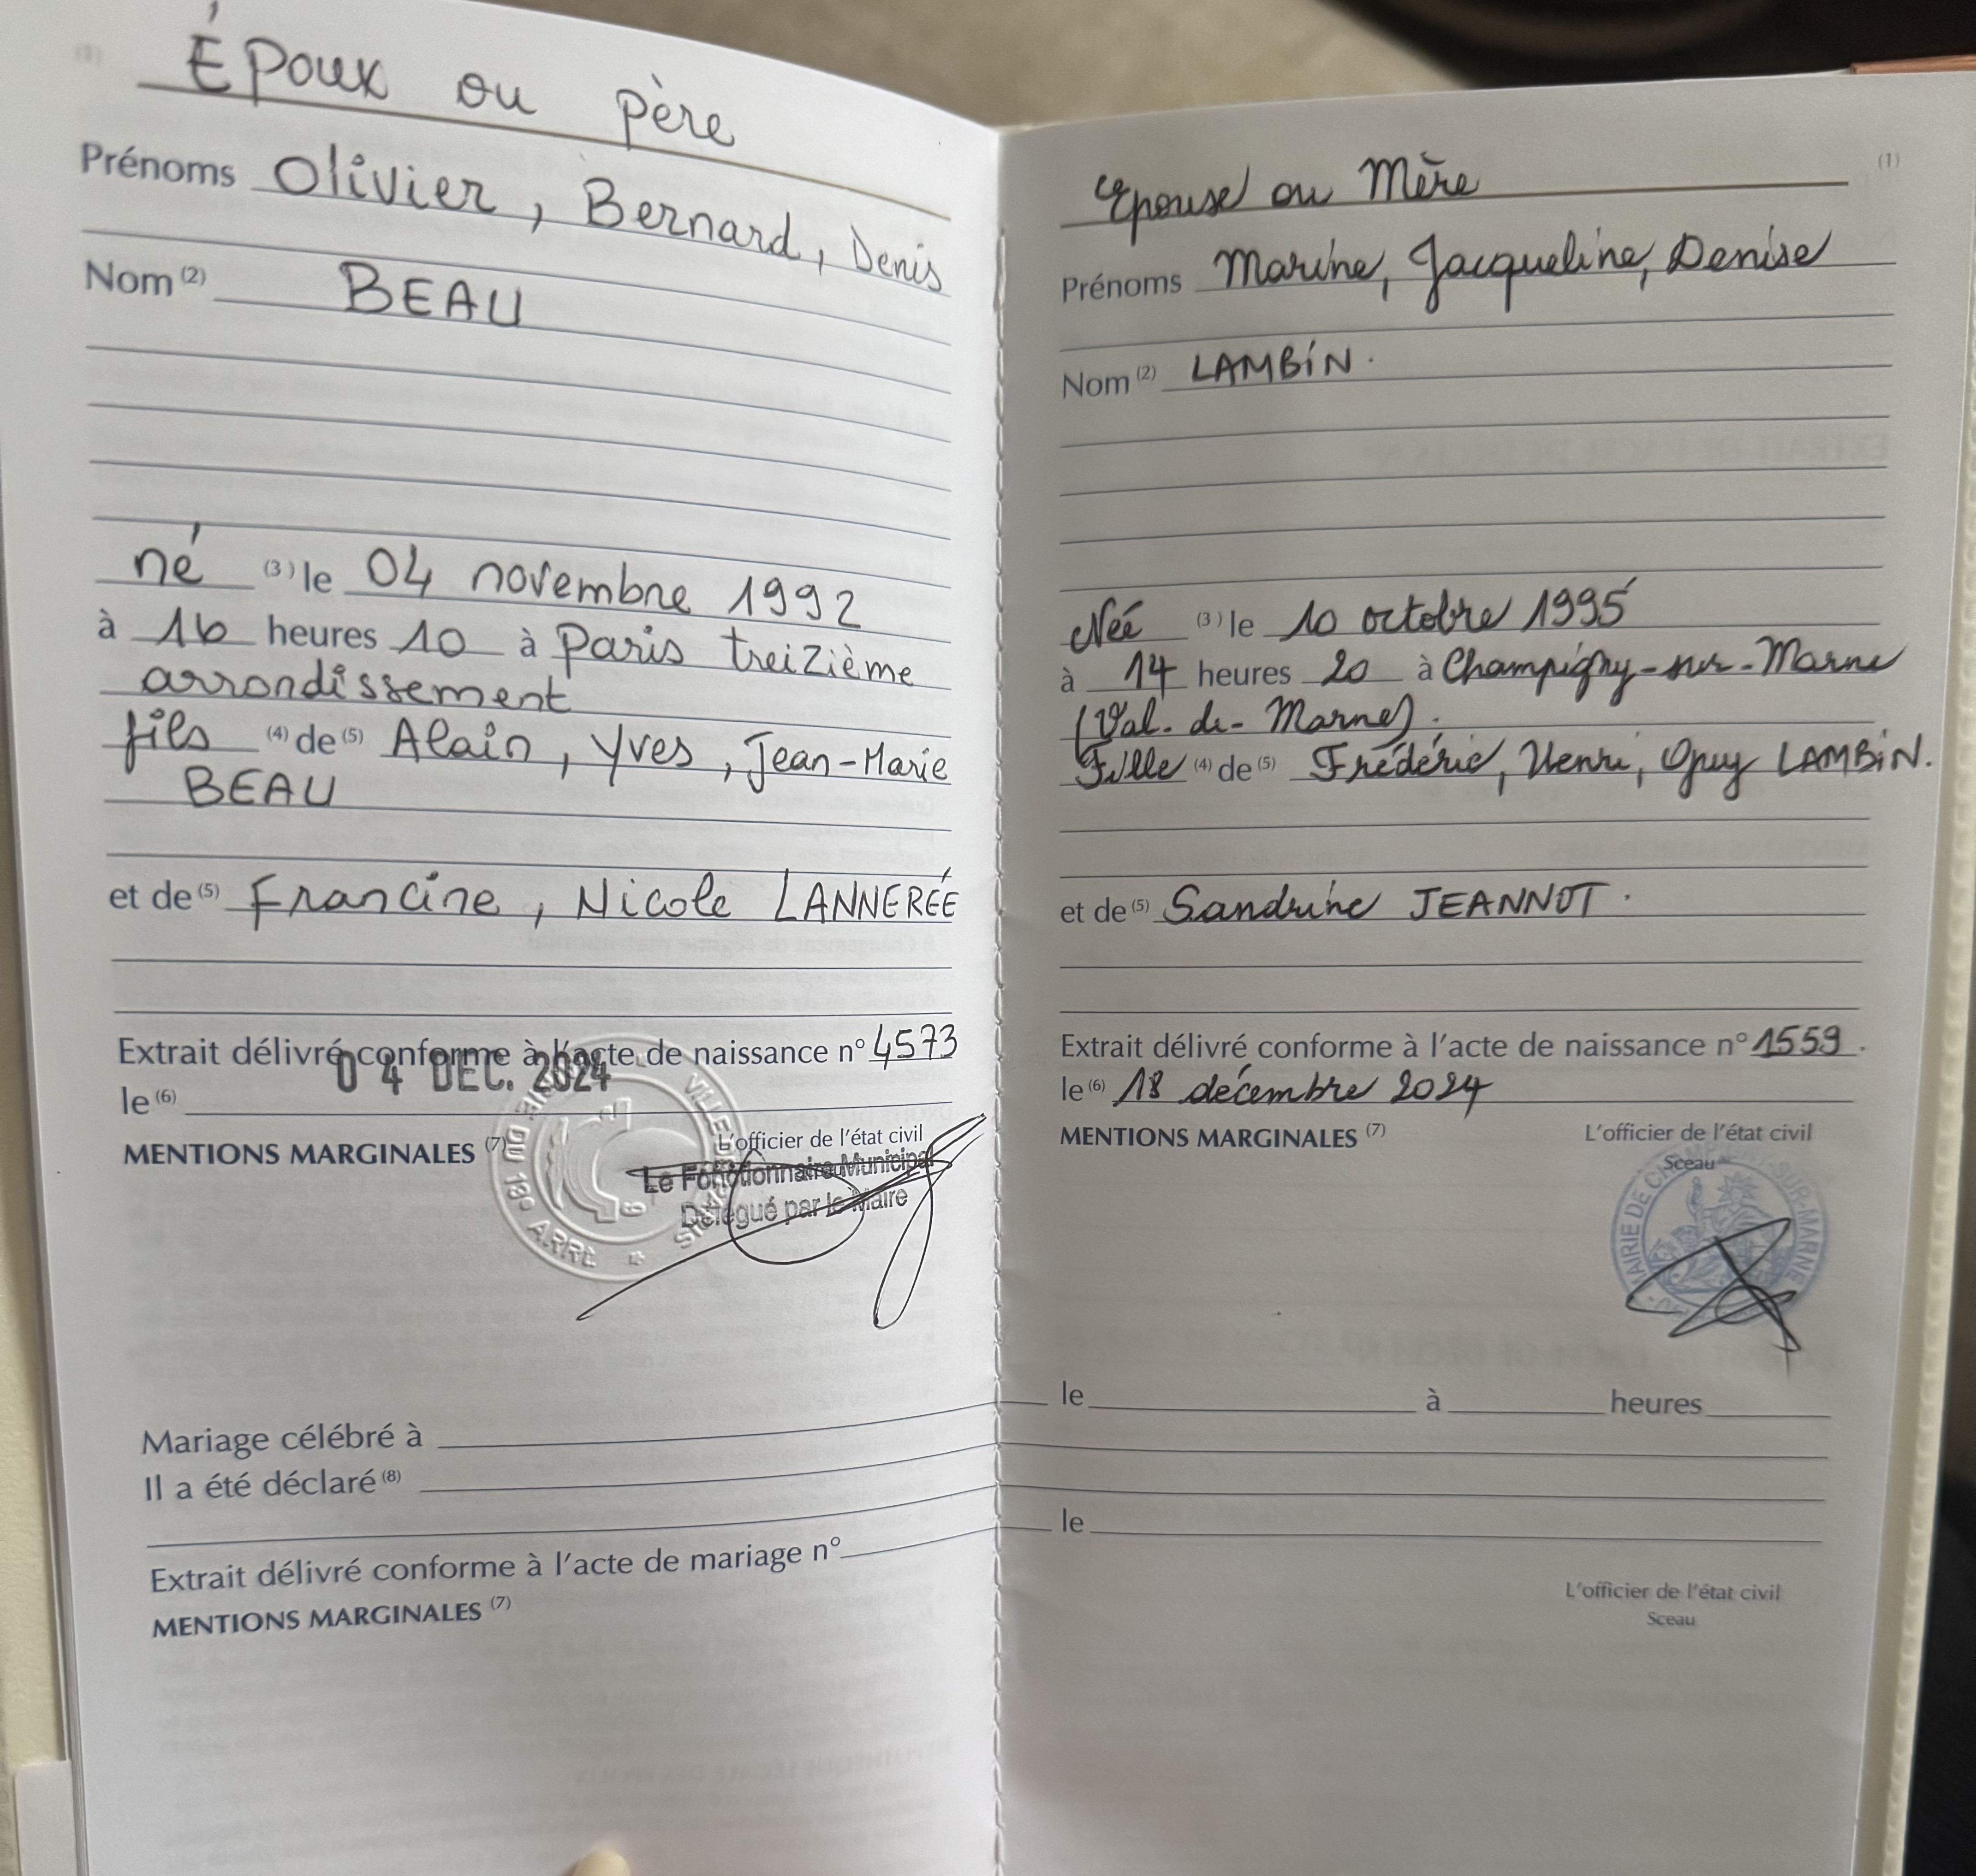 Époux ou père
Prénoms Olivier, Bernard, Denis
Nom (2) BEAU
né (3) le 04 novembre 1992
à 16 heures 10 à Paris treizième
arrondissement
fils (4) de (5) Alain, Yves, Jean-Marie
BEAU
et de (5) Francine, Nicole LANNERÉE
Extrait délivré conforme à l'acte de naissance n° 4573
le (6) 04 DEC. 2024
MENTIONS MARGINALES (7)
L'officier de l'état civil
Le Fonctionnaire Municipal
Délégué par le Maire
MAIRIE DU 13e ARRt
VILLE DE PARIS
Mariage célébré à
Il a été déclaré (8)
Extrait délivré conforme à l'acte de mariage n°
MENTIONS MARGINALES (7)
(1)
Epouse ou Mère
Prénoms Marine, Jacqueline, Denise
Nom (2) LAMBIN.
Née (3) le 10 octobre 1995
à 14 heures 20 à Champigny-sur-Marne
(Val-de-Marne).
Fille (4) de (5) Frédéric, Henri, Guy LAMBIN.
et de (5) Sandrine JEANNOT.
Extrait délivré conforme à l'acte de naissance n° 1559.
le (6) 18 décembre 2024
MENTIONS MARGINALES (7)
L'officier de l'état civil
Sceau
MAIRIE DE CHAMPIGNY-SUR-MARNE
le à heures
le
L'officier de l'état civil
Sceau